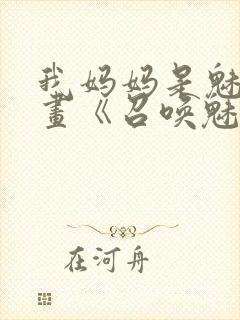 我妈妈是魅
画《召唤魅
在河舟